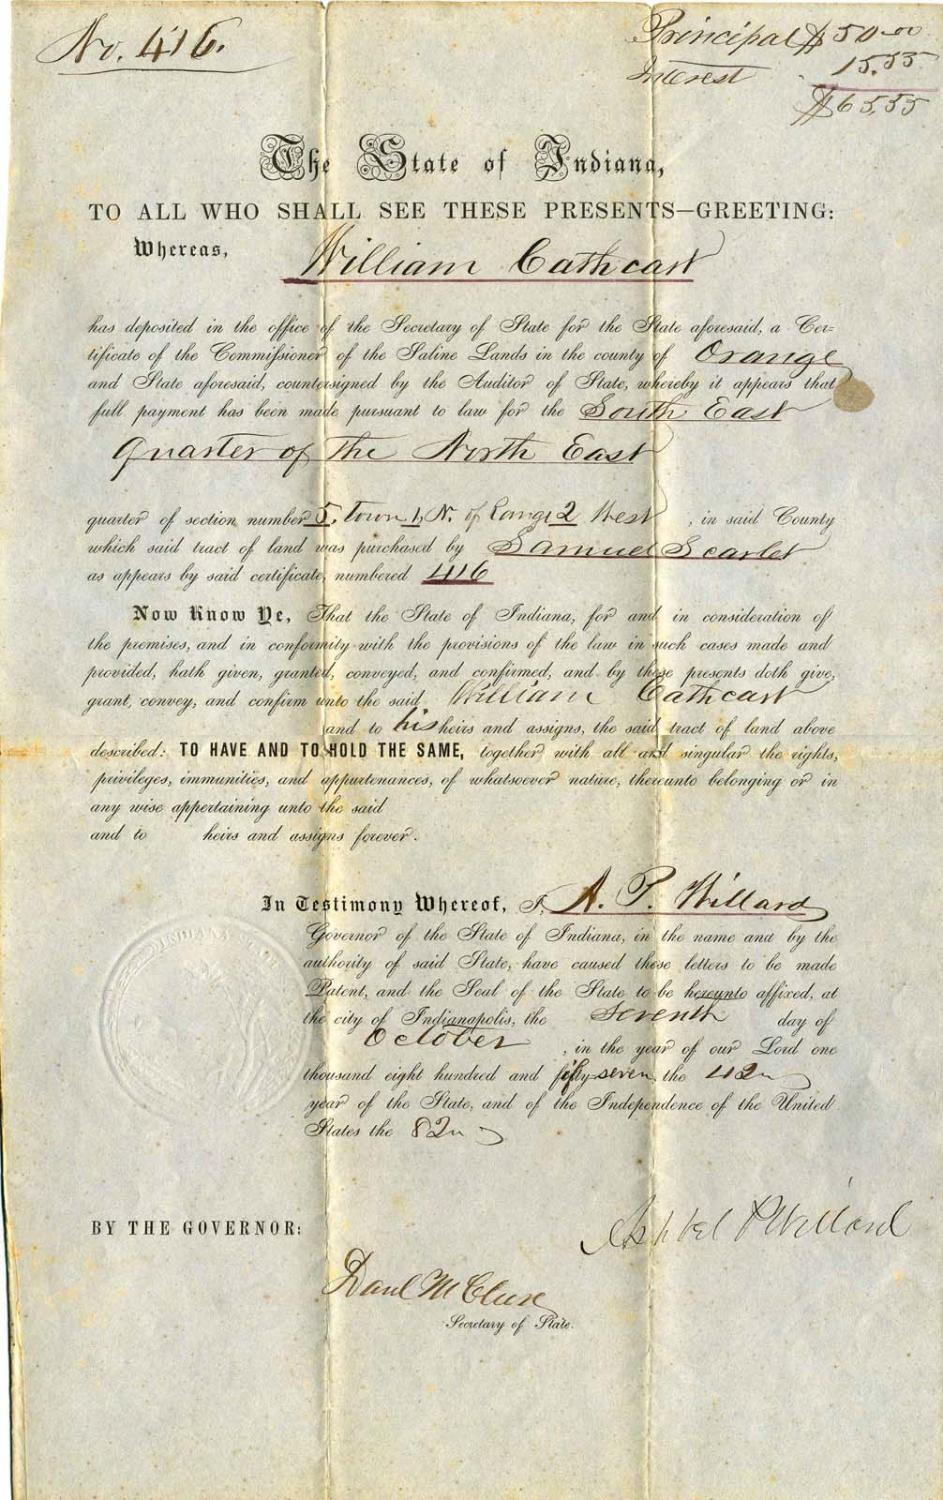 No. 416.
Principal $50.00
Interest 15.55
$65,55
The State of Indiana,
TO ALL WHO SHALL SEE THESE PRESENTS—GREETING:
Whereas, William Cathcart
has deposited in the office of the Secretary of State for the State aforesaid, a Cer-
tificate of the Commissioner of the Saline Lands in the county of Orange
and State aforesaid, countersigned by the Auditor of State, whereby it appears that
full payment has been made pursuant to law for the South East
quarter of the North East
quarter of section number 5, Town 1, N. of Range 2 West, in said County
which said tract of land was purchased by Samuel Scarlet
as appears by said certificate, numbered 416
Now Know Ye, That the State of Indiana, for and in consideration of
the premises, and in conformity with the provisions of the law in such cases made and
provided, hath given, granted, conveyed, and confirmed, and by these presents doth give,
grant, convey, and confirm unto the said William Cathcart
and to his heirs and assigns, the said tract of land above
described: TO HAVE AND TO HOLD THE SAME, together with all and singular the rights,
privileges, immunities, and appurtenances, of whatsoever nature, thereunto belonging or in
any wise appertaining unto the said
and to heirs and assigns forever.
In Testimony Whereof, I, A. P. Willard
Governor of the State of Indiana, in the name and by the
authority of said State, have caused these letters to be made
Patent, and the Seal of the State to be hereunto affixed, at
the city of Indianapolis, the Seventh day of
October, in the year of our Lord one
thousand eight hundred and fifty seven, the 42n
year of the State, and of the Independence of the United
States the 82n
INDIANA
BY THE GOVERNOR:
Ashbel P Willard
Danl McClure
Secretary of State.